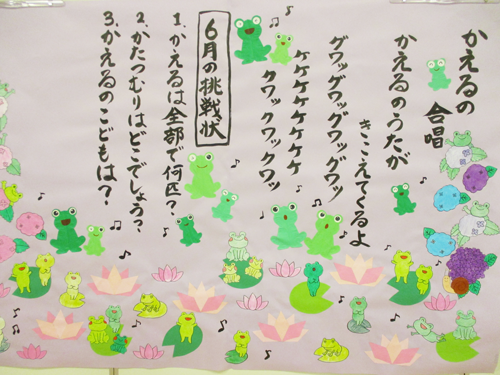 かえるの
合唱
かえるのうたが
きこえてくるよ
グワッグワッグワッグワッ
ケケケケケケケケ
クワックワックワッ
6月の挑戦状
1、かえるは全部で何匹？
2、かたつむりはどこでしょう？
3、かえるのこどもは？